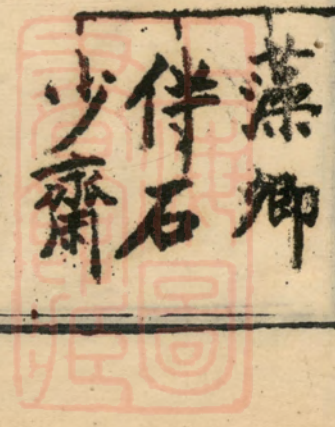 藻卿
伴石
少齋